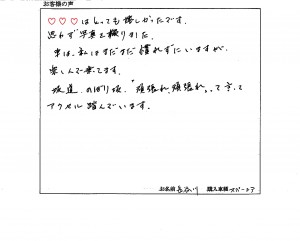 お客様の声
♡♡♡はとっても嬉しかったです。
思わず写真を撮りました。
車は、私はまだまだ慣れずにいますが、
楽しんで乗ってます。
坂道、のぼり坂、頑張れ、頑張れ、って言って
アクセル踏んでいます。
お名前 長谷川 購入車種